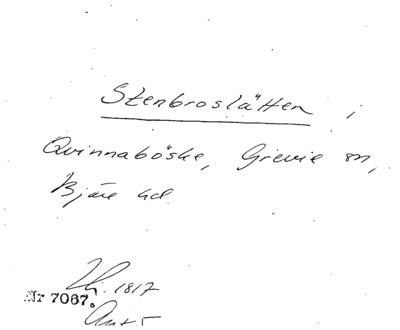 Stenbroslätten i
Qvinnaböske, Grevie sn,
Bjäre hd.
1817
Nr 7067.